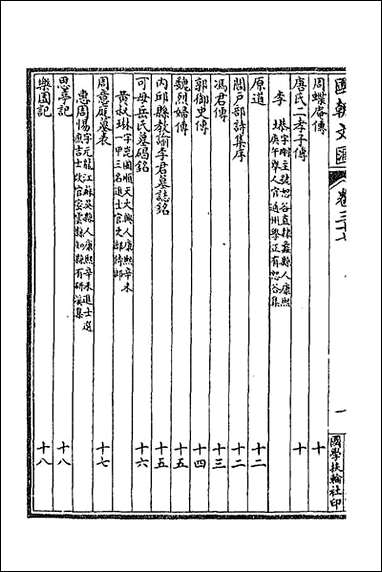 國朝文匯 卷三十七 一 國學扶輪社印
周蝶庵傳 十
唐氏二孝子傳 十
李塨 字剛主號恕谷直隸蠡縣人康熙
庚午舉人官通州學正有恕谷集
原道 十二
閻戶部詩集序 十二
馮君傳 十三
郭御史傳 十四
魏烈婦傳 十五
內邱縣教諭李君墓誌銘 十五
可母岳氏墓碣銘 十六
黃叔琳 字崑圃順天大興人康熙辛未
一甲三名進士官吏部侍郎
周意庭墓表 十七
惠周惕 字元龍江蘇吳縣人康熙辛未進士選
庶吉士改官密雲縣知縣有研溪集
思善記 十八
樂園記 十八